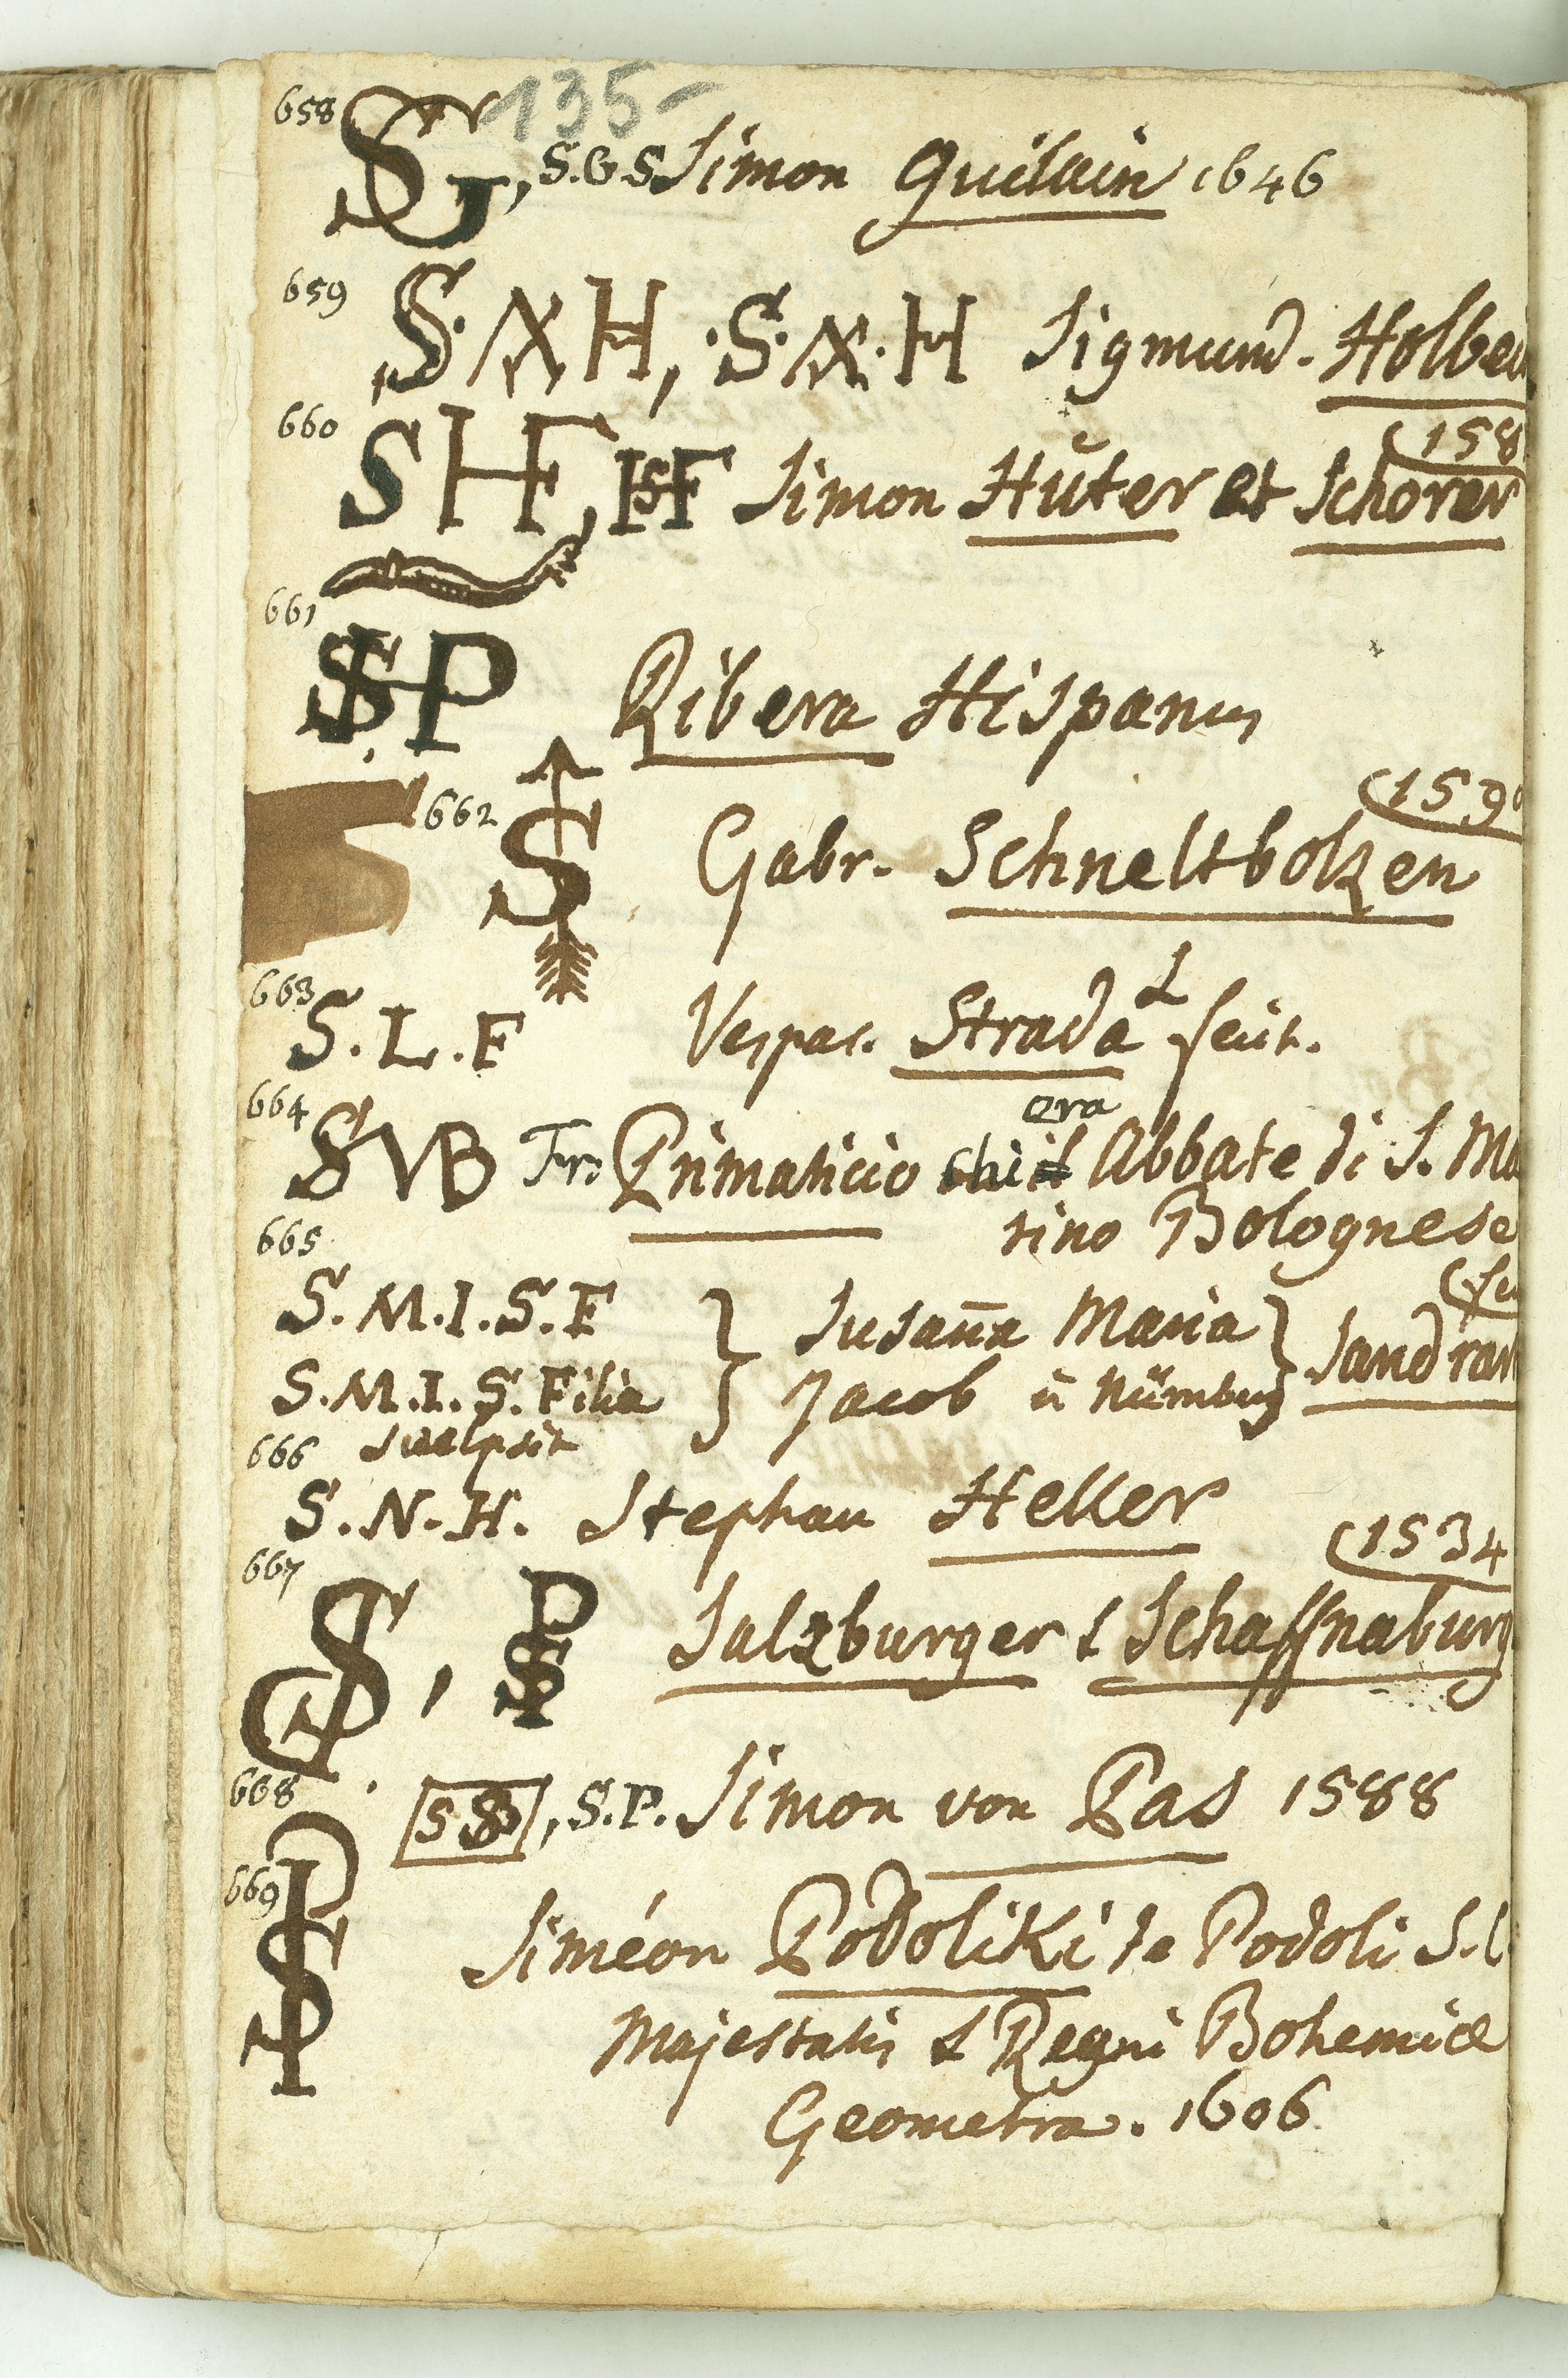 135-
658 SG, S.G.S. Simon Guilain 1646
659 S·AH, ·S·A·H Sigmund. Holbei
660 SHF, HSF Simon Hŭter et Schorer (158
661 SHP Ribera Hispanus
662 S Gabr. Schneltbolzen (159
663 S.L.F Vespas. Strada L fecit.
664 SVB Frs Primaticio Abbate di S. Ma
ora
tino Bolognese
665
S.M.I.S.F } Susan̄a Maria } Sandrart (fec
S.M.I.S. Filia } Jacob ū Nürmbug }
sculpsit
666 S.N.H. Stephan Heller
667 S, PS Salzburger & Schaffnaburg (1534
668 SP, S.P. Simon von Pas 1588
669 PSP Siméon Podoliki de Podoli S.
Majestatis & Regni Bohemiæ
Geometra. 1606